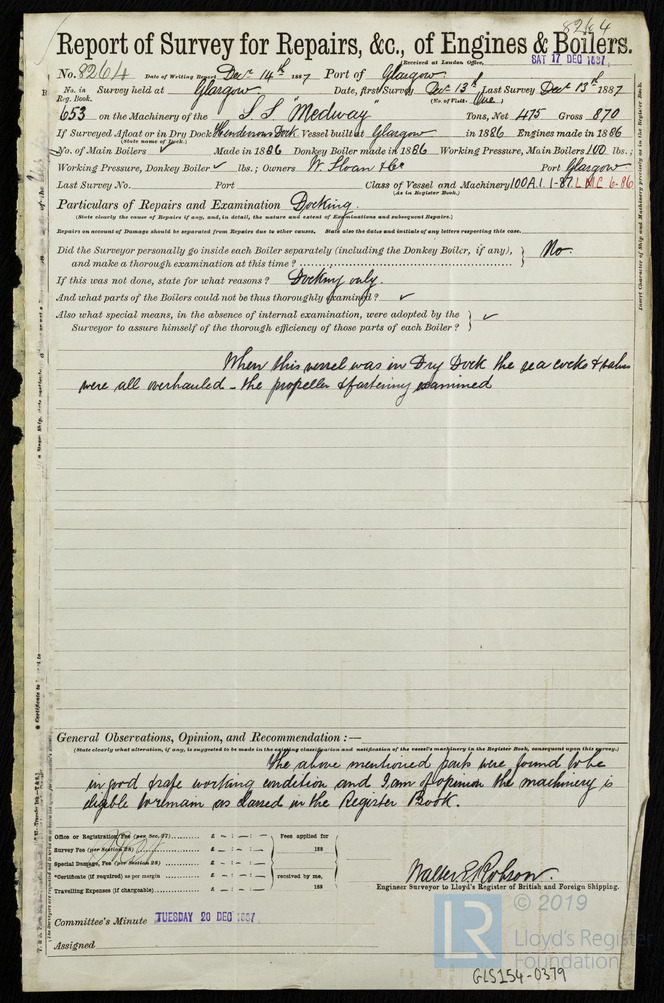 8264
Report of Survey for Repairs, &c., of Engines & Boilers.
(Received at London Office, SAT 17 DEC 1887
No. 8264 Date of Writing Report Decr 14th 1887 Port of Glasgow
No. in Reg. Book. Survey held at Glasgow Date, first Survey Decr 13th Last Survey Decr 13th 1887
(No. of Visits One)
653 on the Machinery of the S.S. "Medway" Tons, Net 475 Gross 870
If Surveyed Afloat or in Dry Dock Hendersons Dock Vessel built at Glasgow in 1886 Engines made in 1886
(State name of Dock.)
No. of Main Boilers ✓ Made in 1886 Donkey Boiler made in 1886 Working Pressure, Main Boilers 100 lbs.;
Working Pressure, Donkey Boiler ✓ lbs.; Owners W. Sloan & Co Port Glasgow
Last Survey No. Port Class of Vessel and Machinery 100A.1. 1-87 LMC 6-86
(As in Register Book.)
Particulars of Repairs and Examination Docking.
(State clearly the cause of Repairs if any, and, in detail, the nature and extent of Examinations and subsequent Repairs.)
Repairs on account of Damage should be separated from Repairs due to other causes. State also the dates and initials of any letters respecting this case.
Did the Surveyor personally go inside each Boiler separately (including the Donkey Boiler, if any), and make a thorough examination at this time? No.
If this was not done, state for what reasons? Docking only.
And what parts of the Boilers could not be thus thoroughly examined? ✓
Also what special means, in the absence of internal examination, were adopted by the
Surveyor to assure himself of the thorough efficiency of those parts of each Boiler? ✓
When this vessel was in Dry Dock the sea cocks & valves
were all overhauled - the propeller & fastening examined
General Observations, Opinion, and Recommendation :—
(State clearly what alteration, if any, is suggested to be made in the existing classification and notification of the vessel's machinery in the Register Book, consequent upon this survey.)
The above mentioned parts were found to be
in good & safe working condition and I am of opinion the machinery is
eligible to remain as classed in the Register Book.
Office or Registration Fee (per Sec. 27) £ - : - : - Fees applied for
Survey Fee (per Section 28) £ - : - : - 188
Special Damage, Fee (per Section 28) £ - : - : -
*Certificate (if required) as per margin £ - : - : - received by me,
Travelling Expenses (if chargeable) £ - : - : - 188
Walter E. Robson.
Engineer Surveyor to Lloyd's Register of British and Foreign Shipping.
Committee's Minute TUESDAY 20 DEC 1887
Assigned
LR © 2019
Lloyd's Register
Foundation
GLS154-0379
Insert Character of Ship and Machinery precisely as in the Register Book.